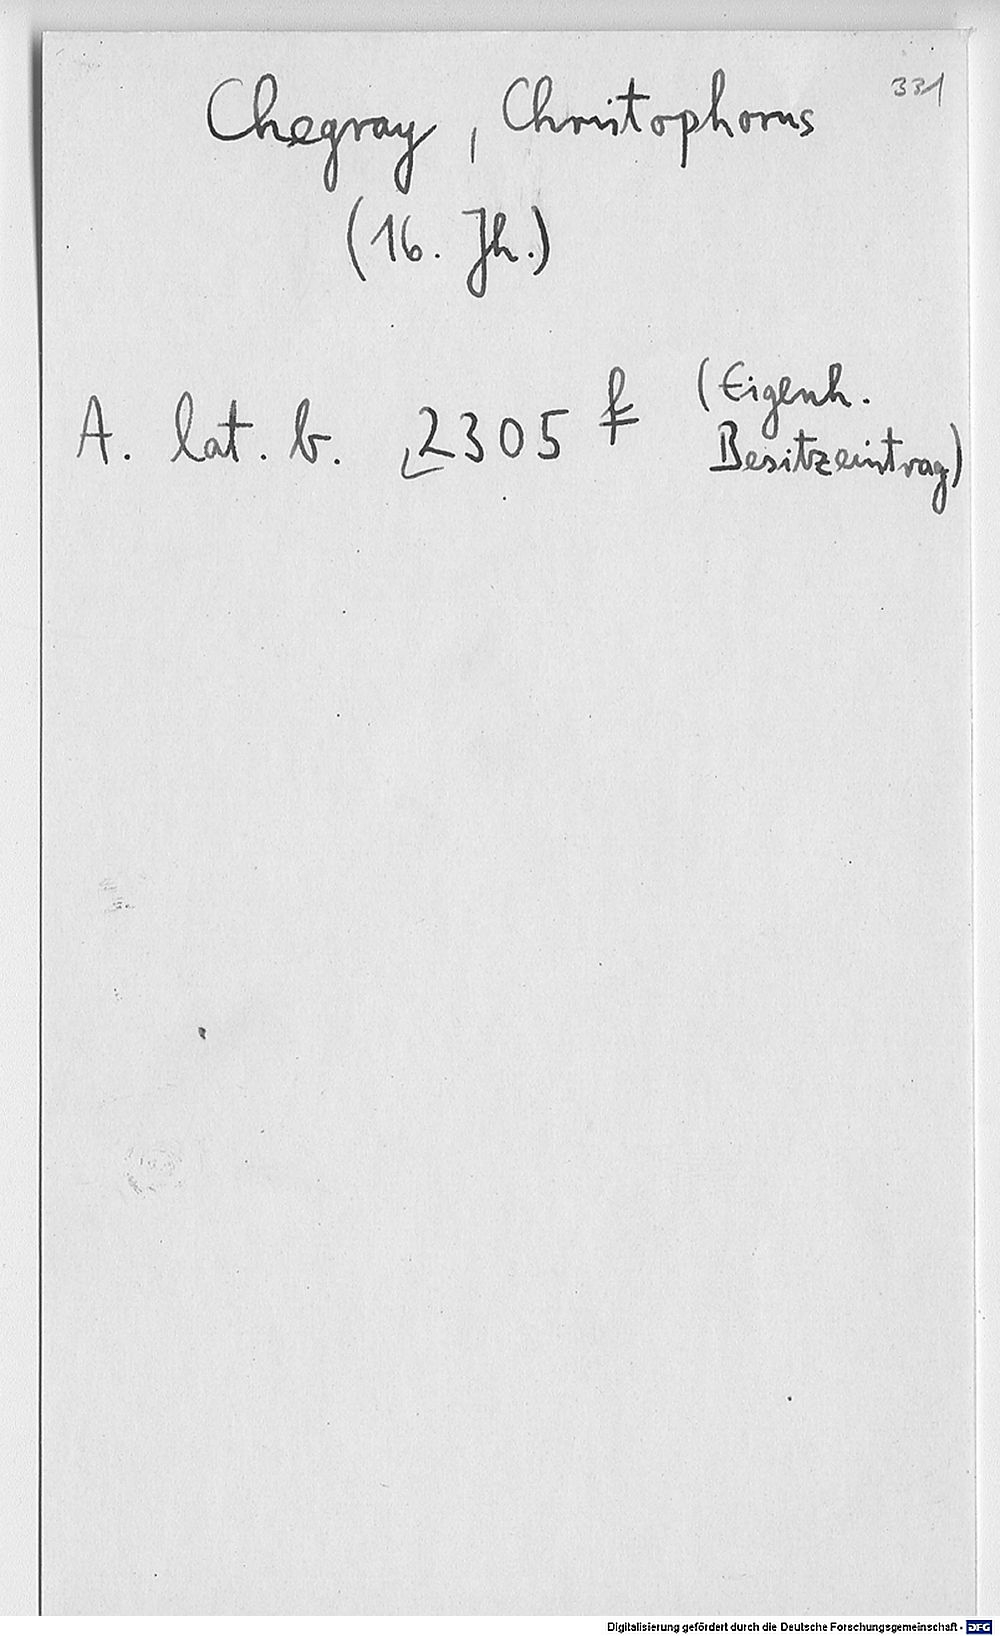 331
Chegray, Christophorus
(16. Jh.)
A. lat. b. 2305 f (Eigenh.
Besitzeintrag)
Digitalisierung gefördert durch die Deutsche Forschungsgemeinschaft - DFG